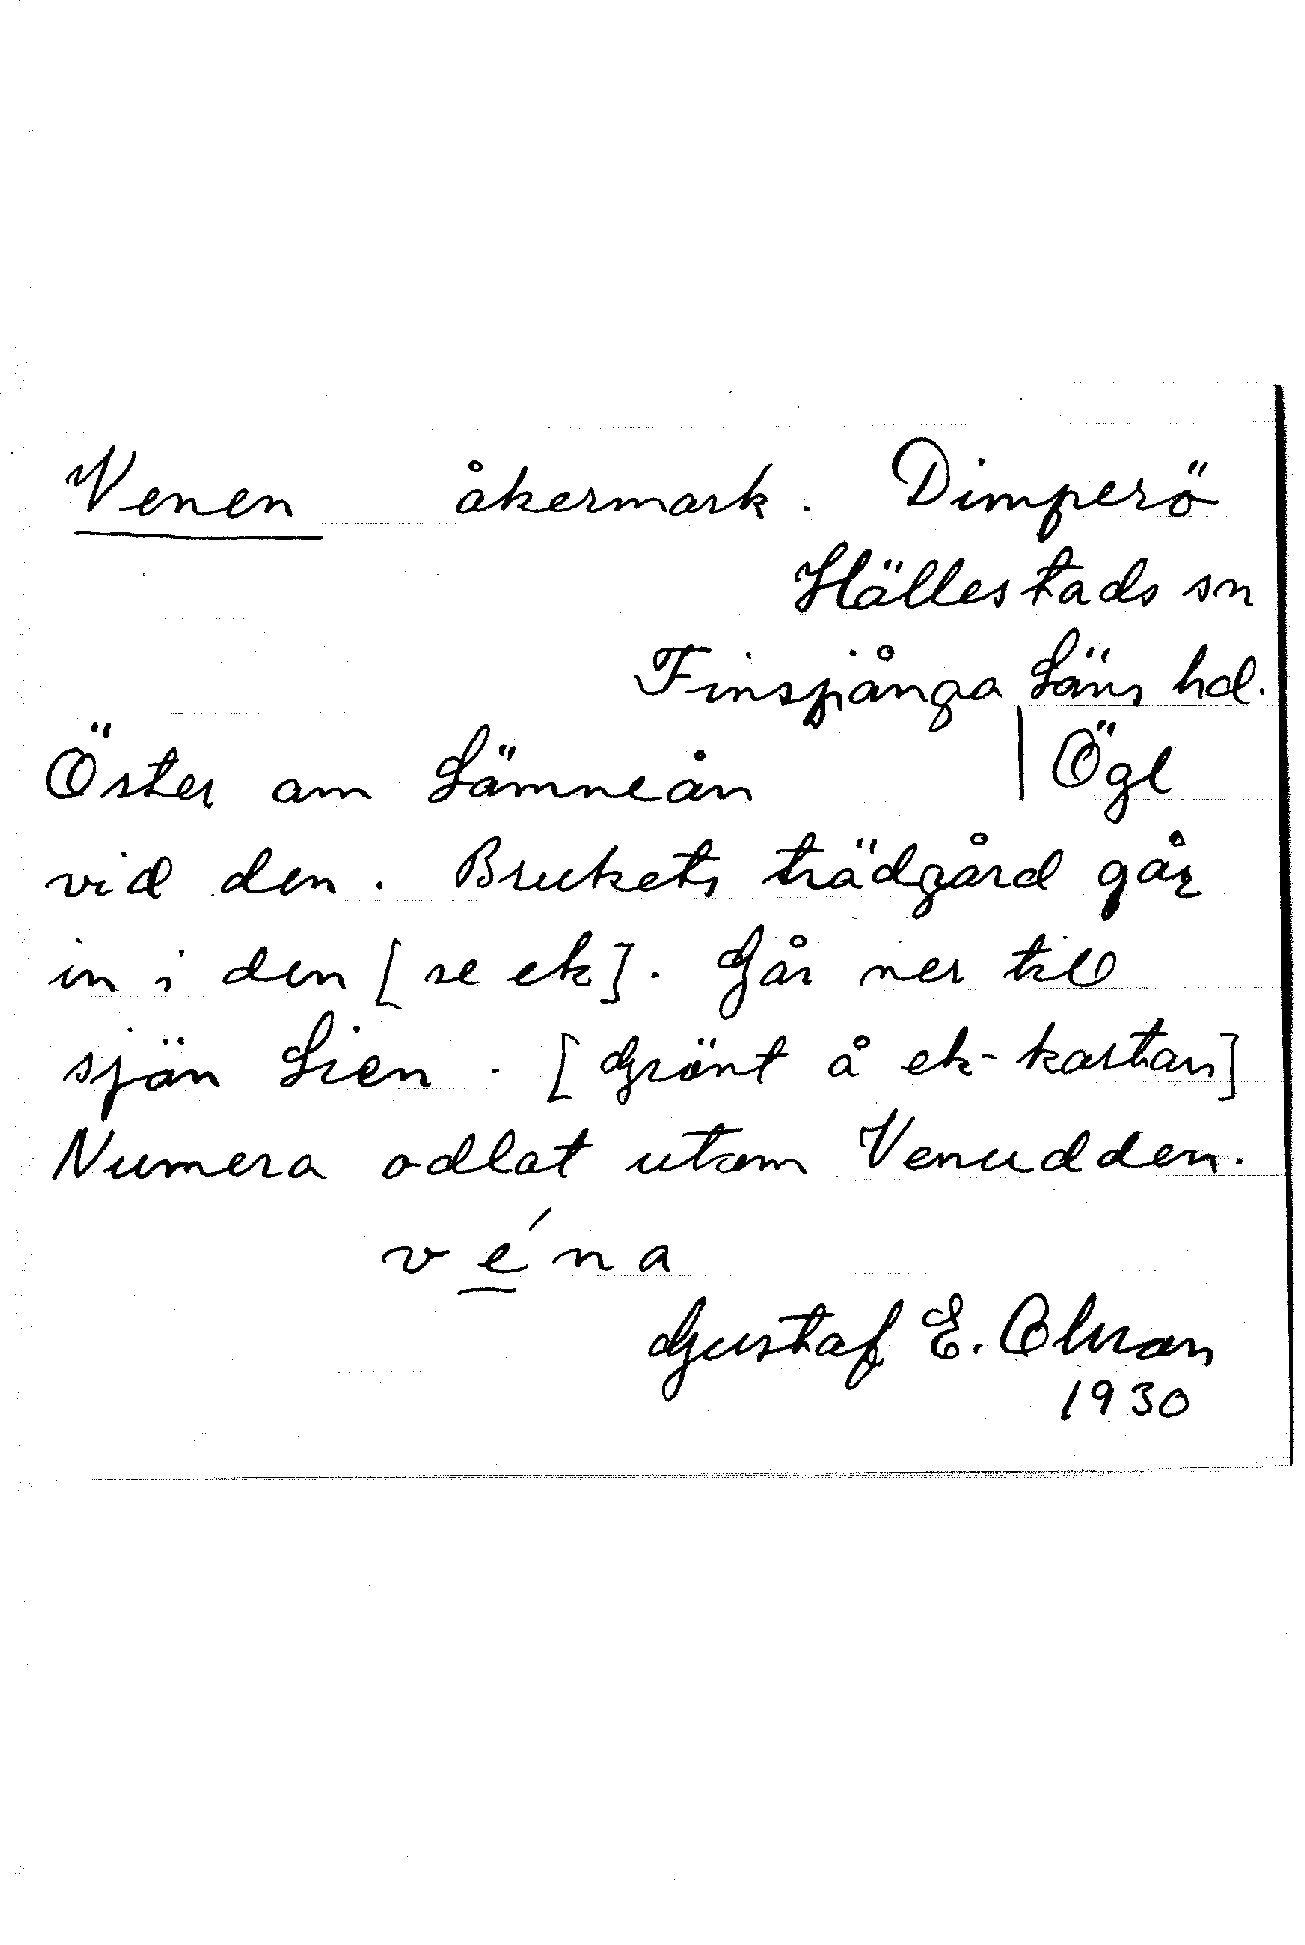 Venen åkermark. Dimperö
Hällestads sn
Finspånga Läns hd.
Öster om Lämneån | Ögl
vid den. Brukets trädgård går
in i den [se ek]. Går ner till
sjön Lien. [Grönt å ek-kartan]
Numera odlat utom Venudden.
véna
Gustaf E. Olsson
1930